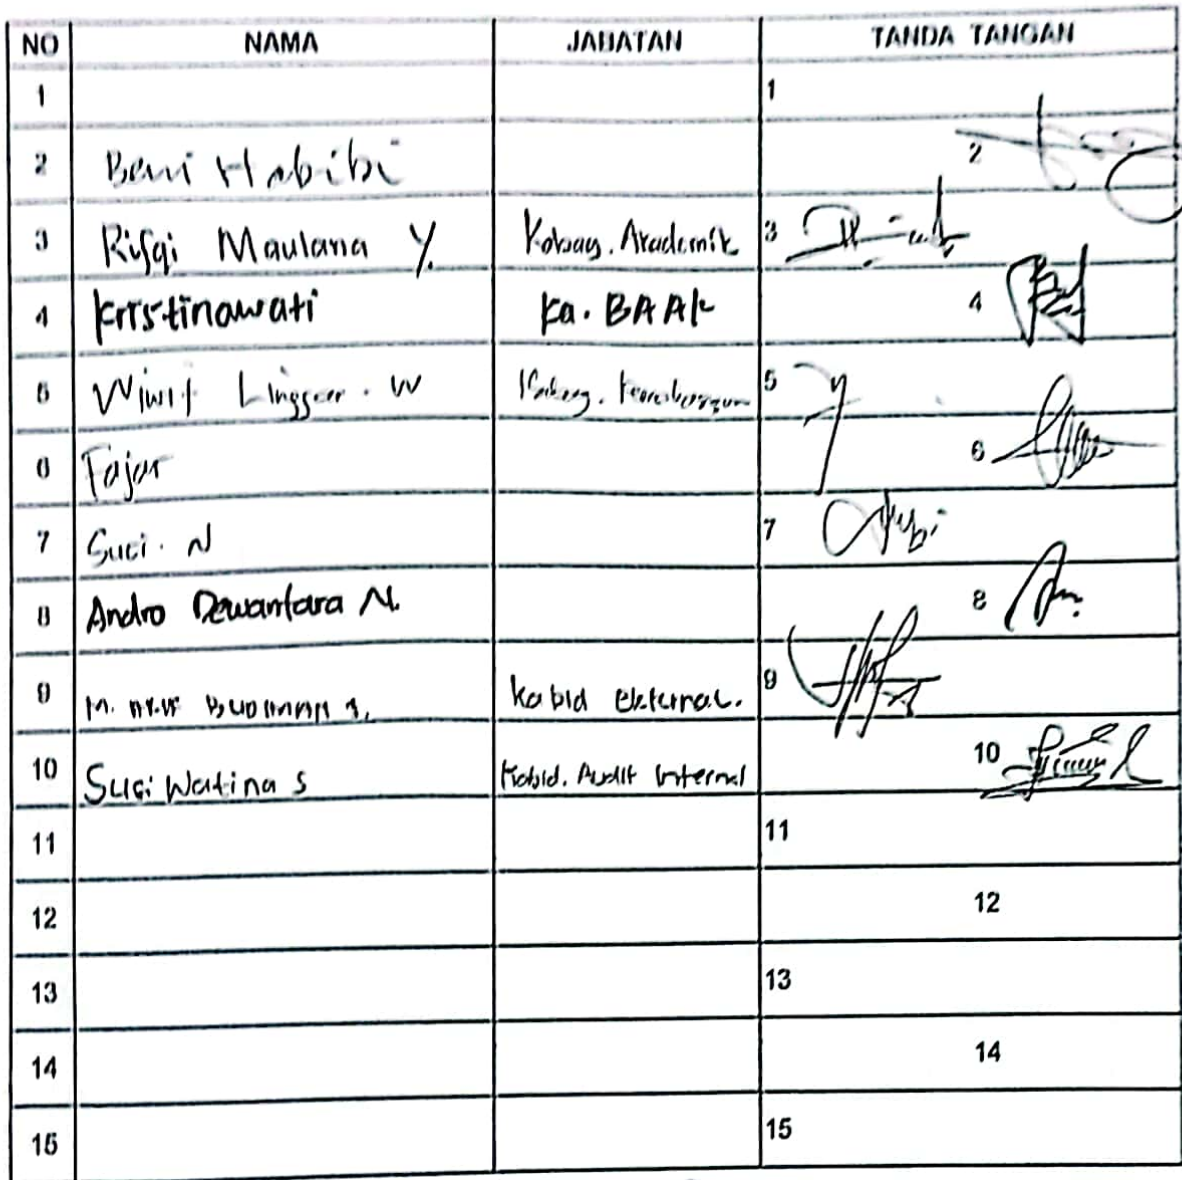 NO NAMA JABATAN TANDA TANGAN
1 1
2 Beni Habibi 2
3 Rifqi Maulana Y. Kabag. Akademik 3
4 Kristinawati Ka. BAAK 4
5 Wiwit W 5
6 Fajar 6
7 Suci. N 7
8 Andro Dewantara N. 8
9 M. Kabid Eksternal. 9
10 Suci Watina S Kabid. Audit Internal 10
11 11
12 12
13 13
14 14
15 15